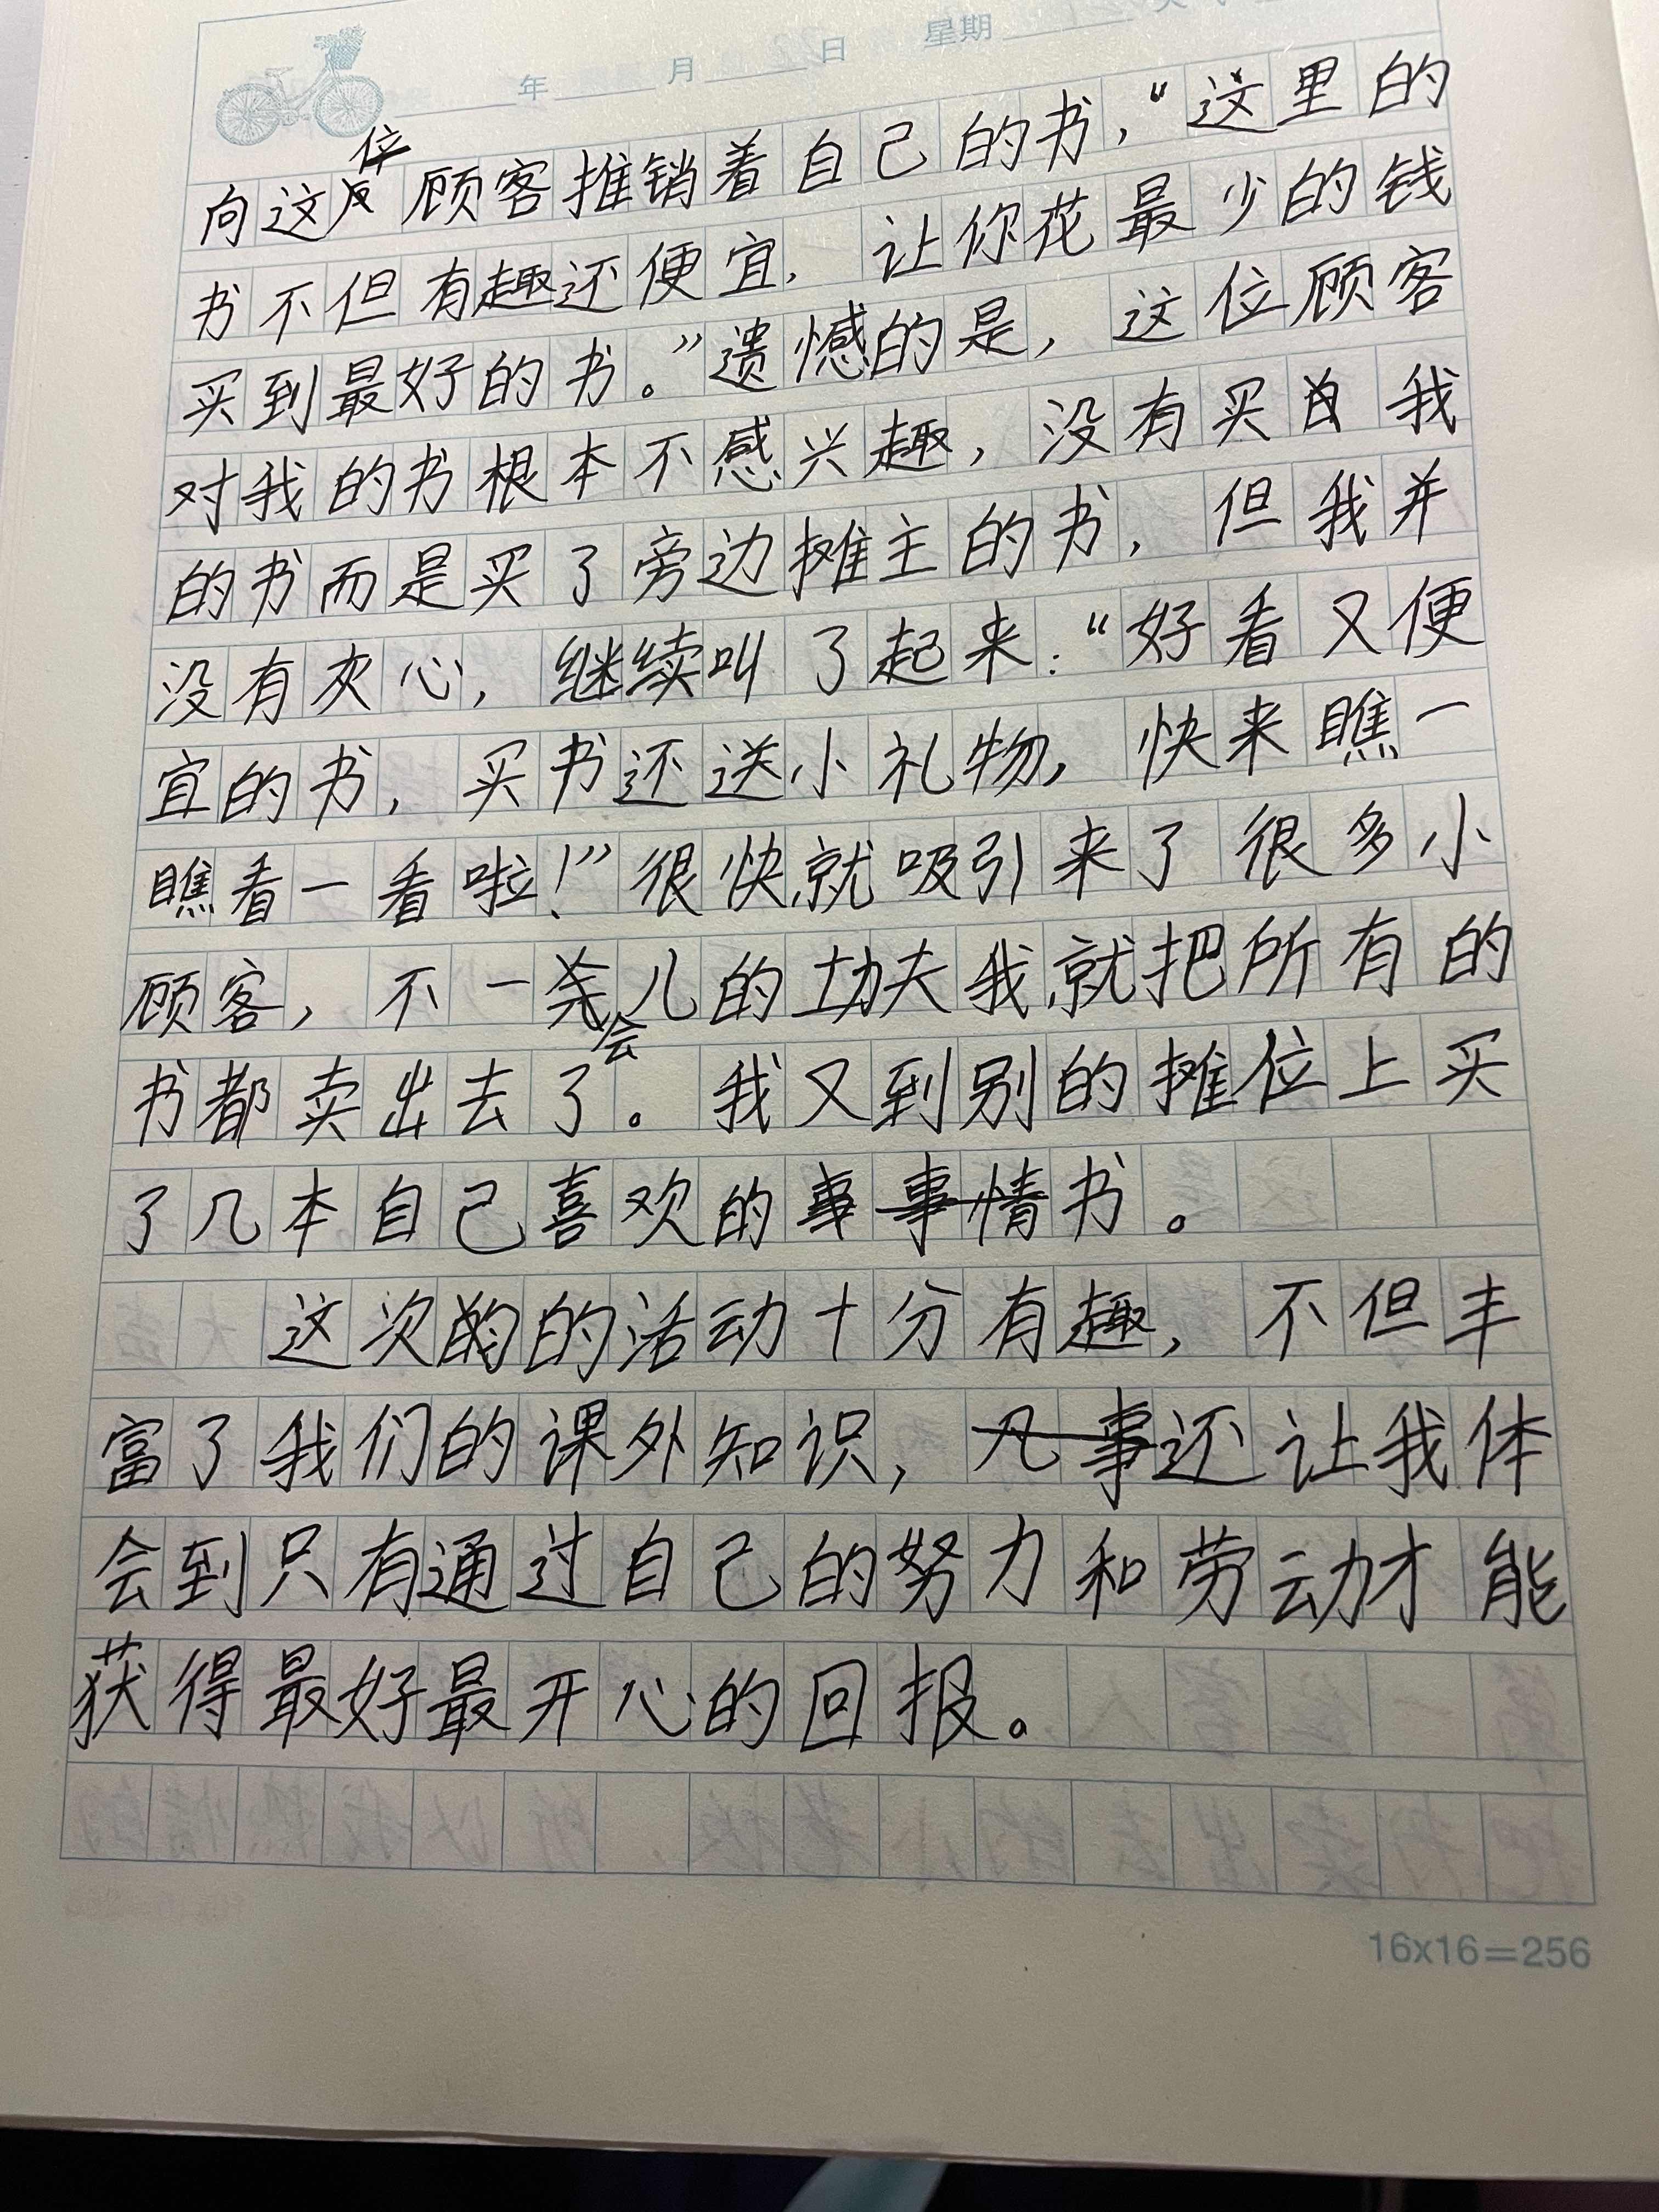 年 月 日 星期
向这位顾客推销着自己的书，“这里的
书不但有趣还便宜，让你花最少的钱
买到最好的书。”遗憾的是，这位顾客
对我的书根本不感兴趣，没有买我
的书而是买了旁边摊主的书，但我并
没有灰心，继续叫了起来：“好看又便
宜的书，买书还送小礼物，快来瞧一
瞧看一看啦！”很快就吸引来了很多小
顾客，不一会儿的功夫我就把所有的
书都卖出去了。我又到别的摊位上买
了几本自己喜欢的书。
这次的活动十分有趣，不但丰
富了我们的课外知识，还让我体
会到只有通过自己的努力和劳动才能
获得最好最开心的回报。
16x16=256